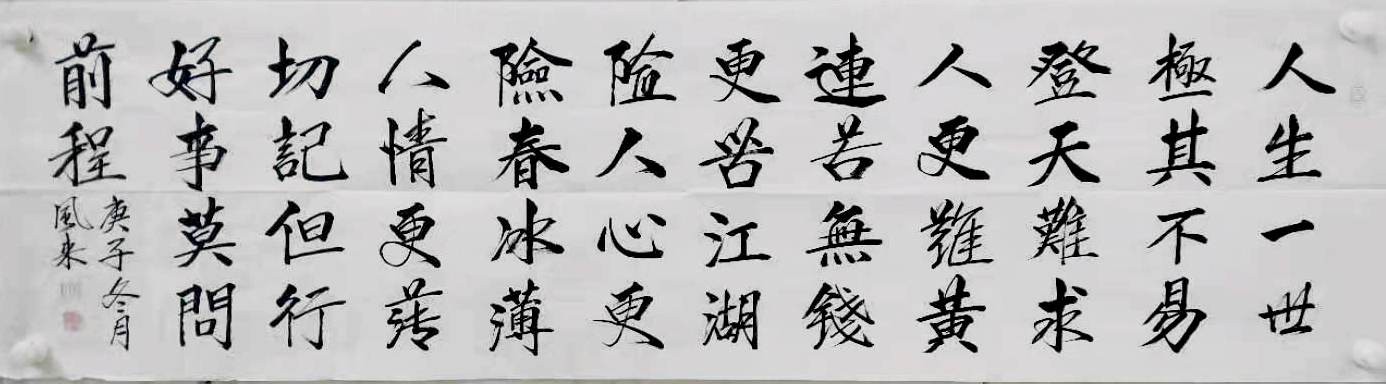 人生一世
極其不易
登天難求
人更難黃
連苦無錢
更苦江湖
險人心更
險春冰薄
人情更薄
切記但行
好事莫問
前程
庚子冬月
風來